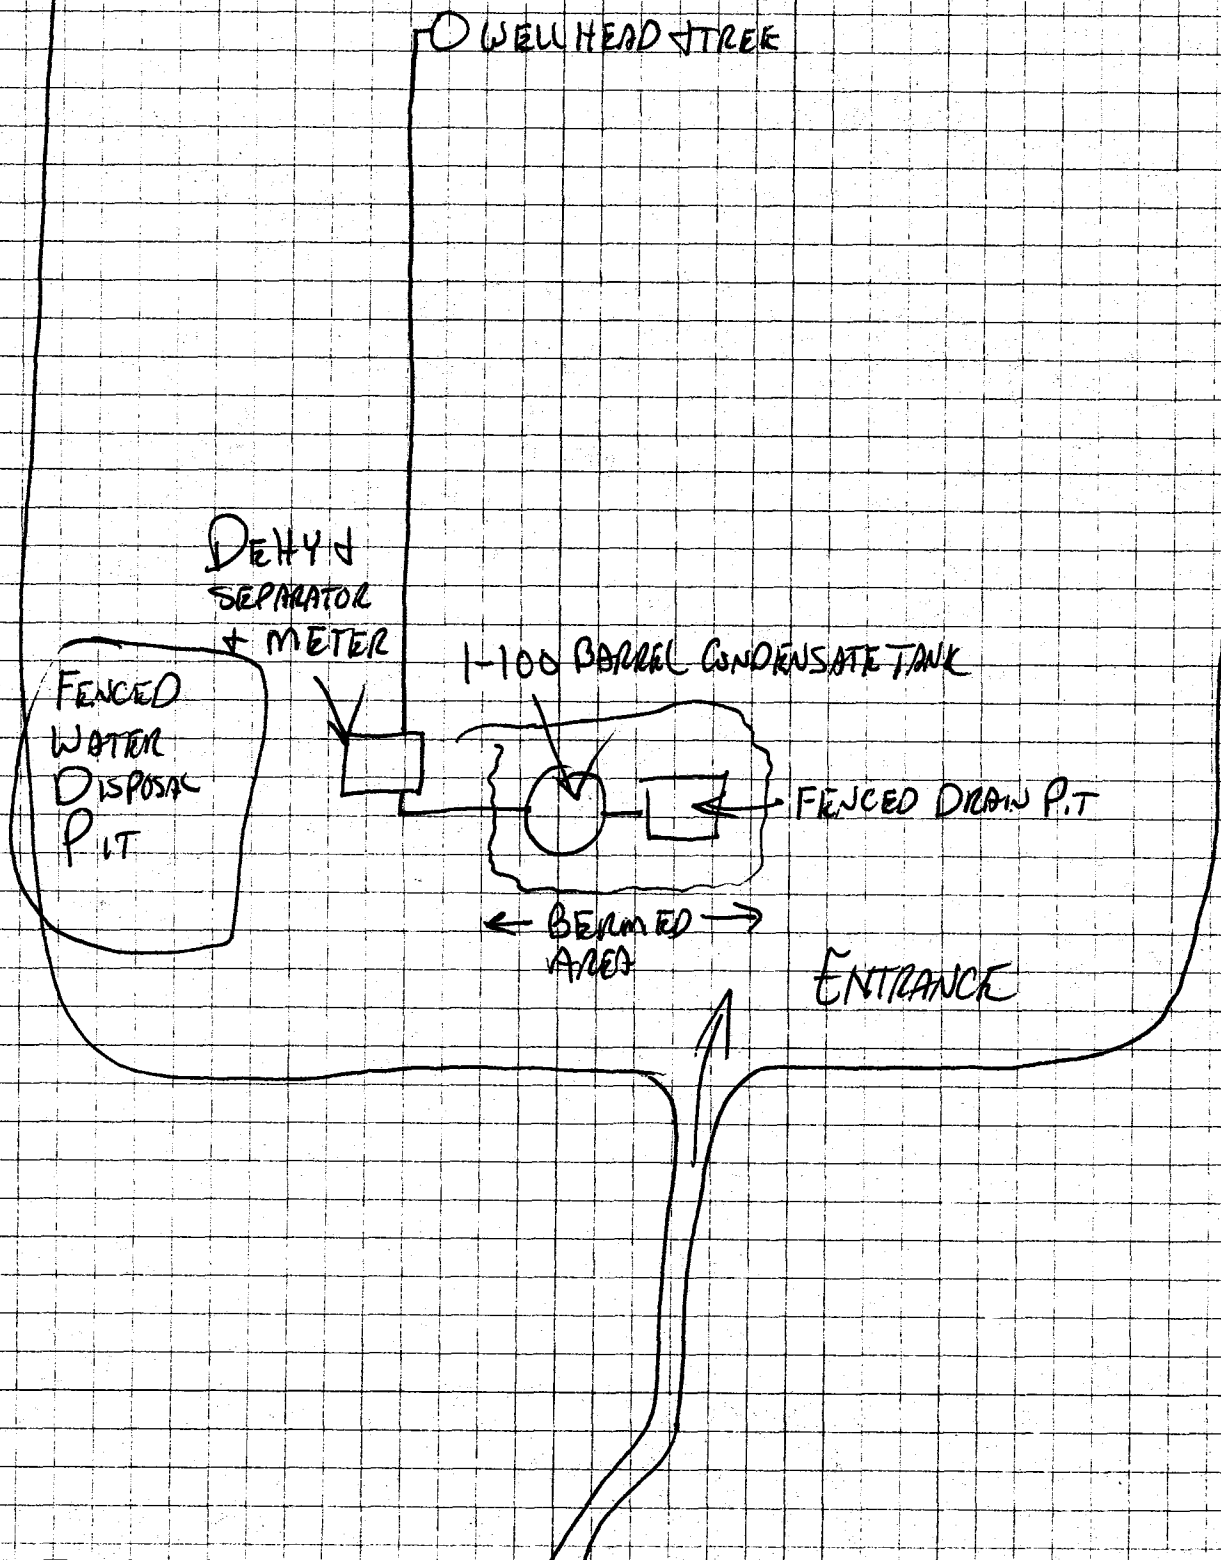 WELLHEAD & TREE
DEHY &
SEPARATOR
& METER
1-100 BARREL CONDENSATE TANK
FENCED
WATER
DISPOSAL
PIT
FENCED DRAIN PIT
BERMED
AREA
ENTRANCE